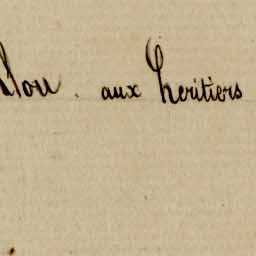 aux heritiers